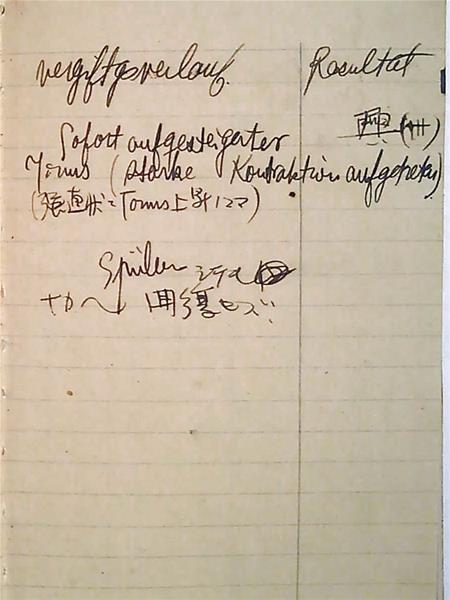 Vergiftgsverlauf. Resultat
興(卅)
Sofort aufgesteigerter
Tonus (starke Kontraktion aufgetreten)
(強直状ニTonus上昇
Spülen シテモ
ナカ〱 回復セズ.